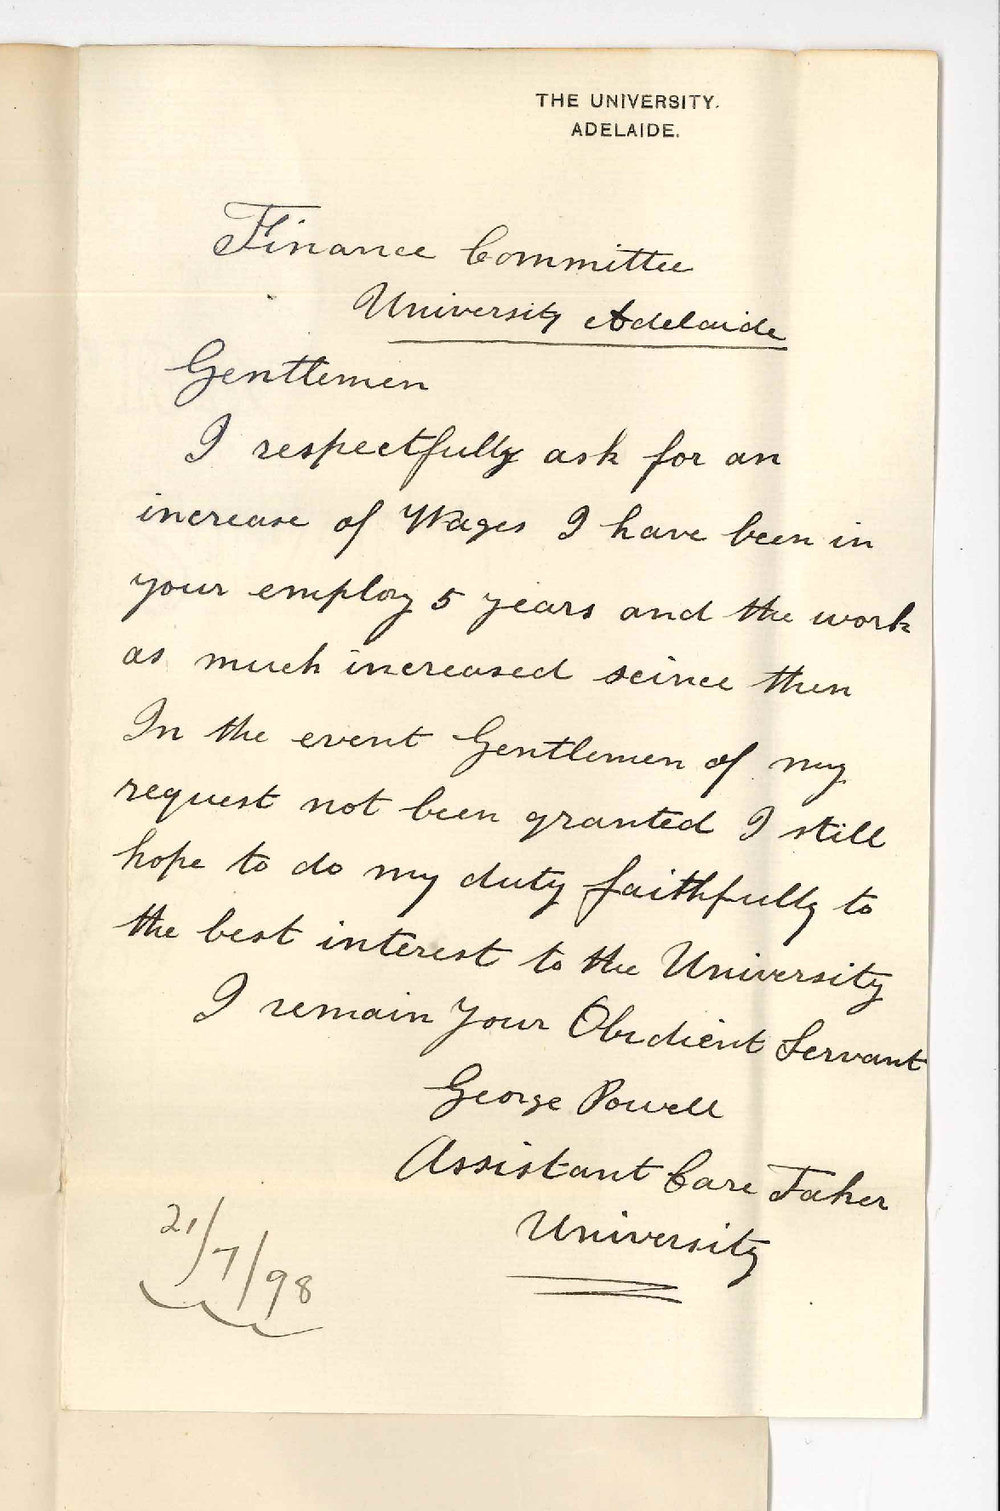 THE UNIVERSITY.
ADELAIDE.
Finance Committee
University Adelaide
Gentlemen
I respectfully ask for an
increase of Wages I have been in
your employ 5 years and the work
as much increased seince then
In the event Gentlemen of my
request not been granted I still
hope to do my duty faithfully to
the best interest to the University
I remain Your Obedient Servant
George Powell
Assistant Care Taker
University
21/7/98